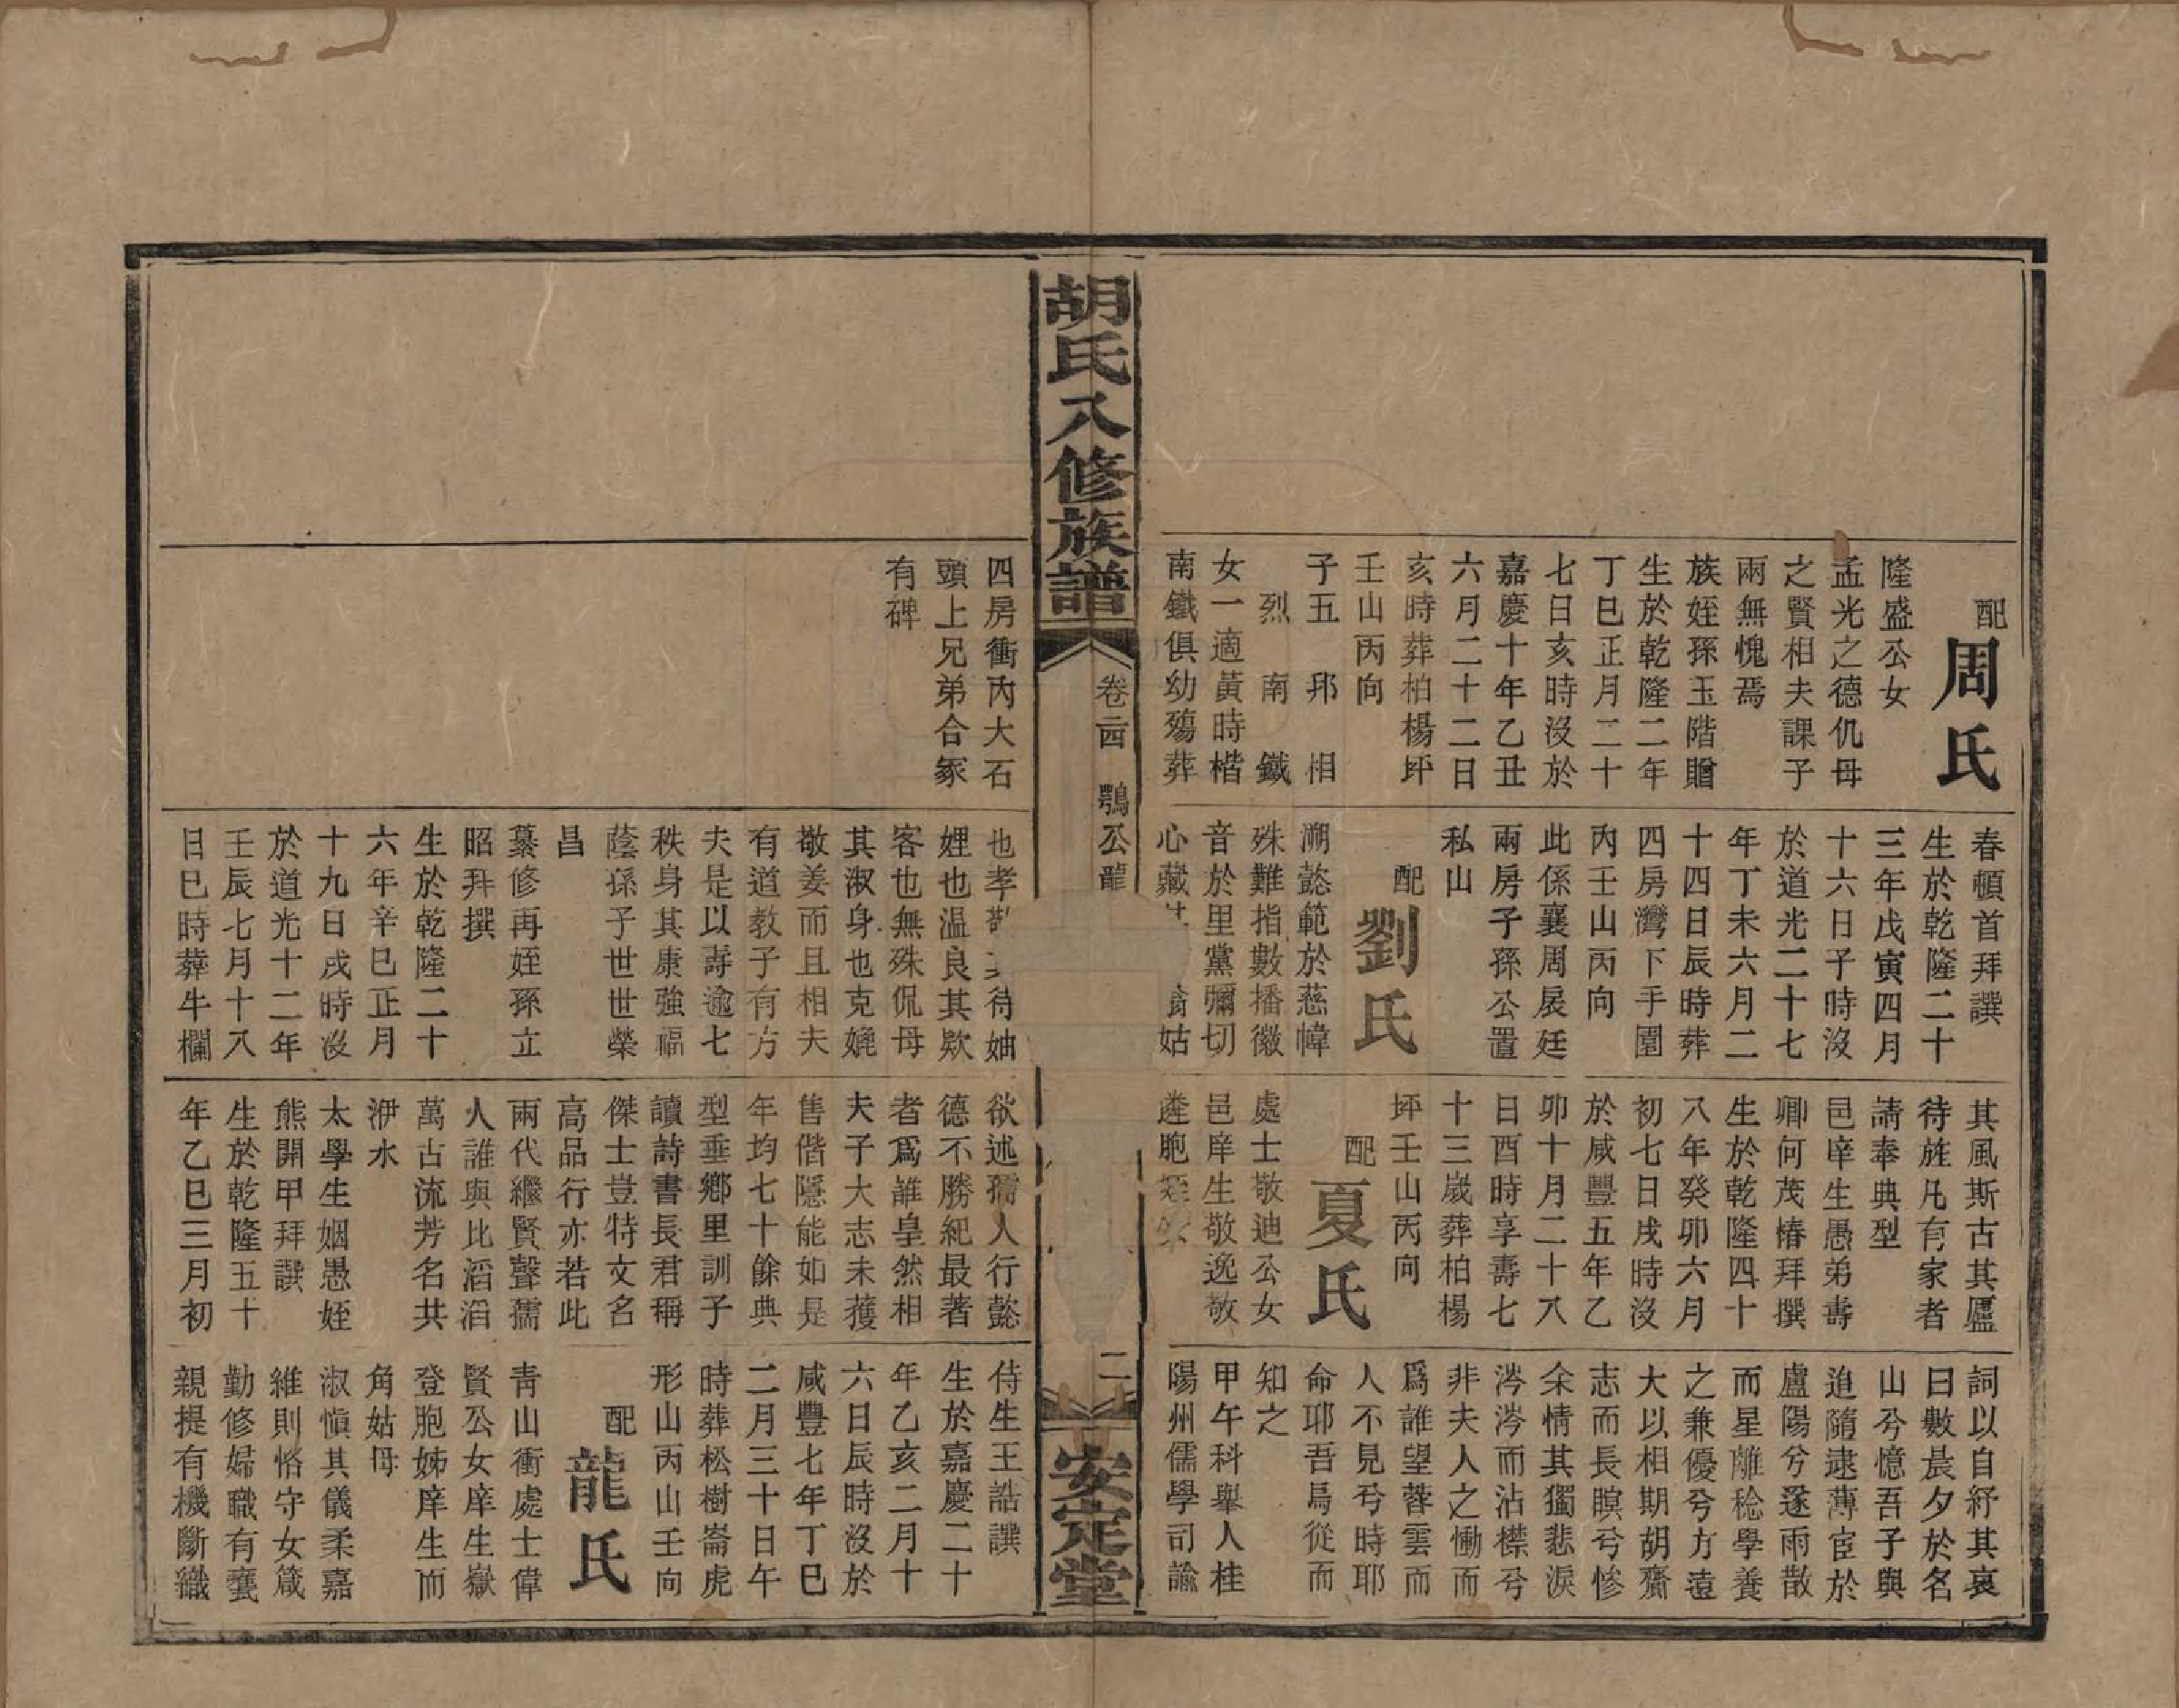 配周氏
隆盛公女
孟光之德仉母
之賢相夫課子
兩無愧焉
族姪孫玉階贈
生於乾隆二年
丁巳正月二十
七日亥時沒於
嘉慶十年乙丑
六月二十二日
亥時葬柏楊坪
壬山丙向
子五 邦 相
烈 南 鐵
女一適黃時楷
南鐵俱幼殤葬
春頓首拜譔
生於乾隆二十
三年戊寅四月
十六日子時沒
於道光二十七
年丁未六月二
十四日辰時葬
四房灣下手園
內壬山丙向
此係襄周展廷
兩房子孫公置
私山
配劉氏
溯懿範於慈幃
殊難指數播徽
音於里黨彌切
心藏
姑
其風斯古其廬
待旌凡有家者
請奉典型
邑庠生愚弟壽
卿何茂椿拜撰
生於乾隆四十
八年癸卯六月
初七日戌時沒
於咸豐五年乙
卯十月二十八
日酉時享壽七
十三歲葬柏楊
坪壬山丙向
配夏氏
處士敬迪公女
邑庠生敬逸敬
遴胞
詞以自紓其哀
曰數晨夕於名
山兮憶吾子與
追隨逮薄宦於
盧陽兮遂雨散
而星離稔學養
之兼優兮方遠
大以相期胡齎
志而長瞑兮慘
余情其獨悲淚
涔涔而沾襟兮
非夫人之慟而
爲誰望蓉雲而
人不見兮時耶
命耶吾烏從而
知之
甲午科舉人桂
陽州儒學司諭
胡氏八修族譜
卷二四 鶚公龍
二
安定堂
四房衝內大石
頭上兄弟合冢
有碑
也孝敬
待妯
娌也温良其欵
客也無殊侃母
其淑身也克媲
敬姜而且相夫
有道教子有方
夫是以壽逾七
秩身其康強福
蔭孫子世世榮
昌
纂修再姪孫立
昭拜撰
生於乾隆二十
六年辛巳正月
十九日戌時沒
於道光十二年
壬辰七月十八
日巳時葬牛欄
欲述孺人行懿
德不勝紀最著
者爲誰皇然相
夫子大志未獲
售偕隱能如是
年均七十餘典
型垂鄉里訓子
讀詩書長君稱
傑士豈特文名
高品行亦若此
兩代繼賢聲孺
人誰與比滔滔
萬古流芳名共
洢水
太學生姻愚姪
熊開甲拜譔
生於乾隆五十
年乙巳三月初
侍生王誥譔
生於嘉慶二十
年乙亥二月十
六日辰時沒於
咸豐七年丁巳
二月三十日午
時葬松樹崙虎
形山丙山壬向
配龍氏
青山衝處士偉
賢公女庠生嶽
登胞姊庠生而
角姑母
淑愼其儀柔嘉
維則恪守女箴
勤修婦職有甕
親提有機斷織